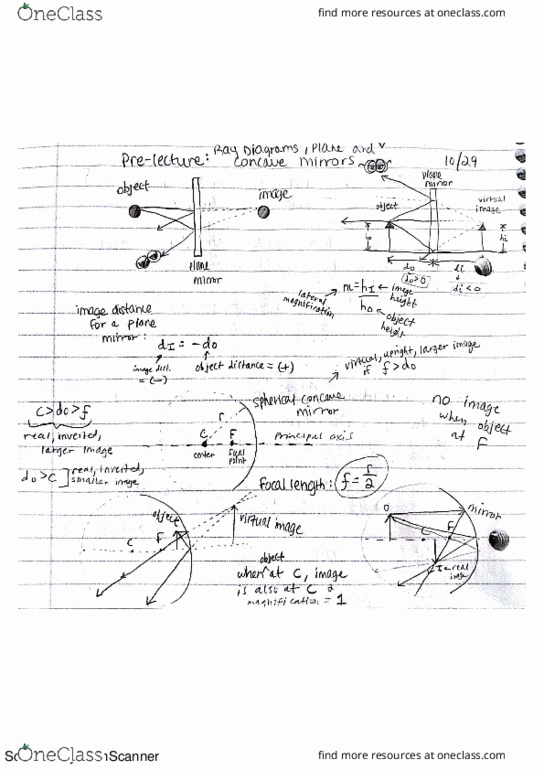 OneClass
find more resources at oneclass.com
Pre-lecture: Ray Diagrams, Plane and
concave mirrors
10/29
object
image
plane
mirror
plane
mirror
object
virtual
image
hi
do
do>0
di
di<0
lateral
magnification
m = hI
ho
image
height
object
height
image distance
for a plane
mirror:
dI = -do
image dist.
= (-)
object distance = (+)
virtual, upright, larger image
if f > do
spherical concave
mirror
r
C
F
center
focal
point
principal axis
c > do > f
real, inverted,
larger image
do > C
real, inverted,
smaller image
no image
when object
at F
Focal length: f = r/2
object
C
F
virtual image
object
when at C, image
is also at C &
magnification = 1
O
C
F
mirror
OneClass
Scanner
find more resources at oneclass.com